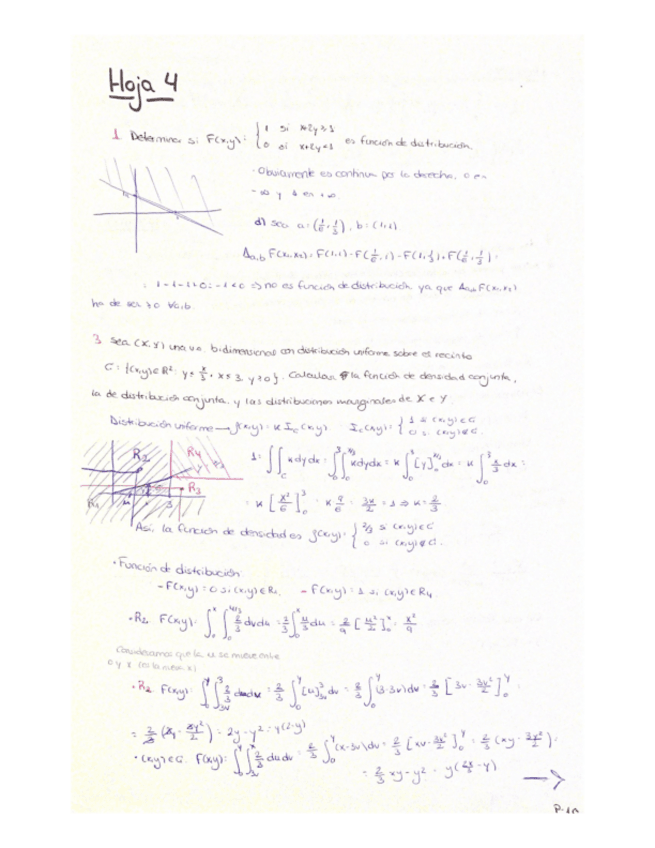 Hoja 4
1 Determinar si F(x,y): { 1 si x+2y≥1
0 si x+2y<1 es función de distribución.
· Obviamente es continua por la derecha, 0 en
-∞ y 1 en +∞.
d) sea a=(1/6, 1/3), b=(1,1)
Δa,b F(x₁,x₂) = F(1,1) - F(1/6,1) - F(1,1/3) + F(1/6,1/3) =
= 1-1-1+0 = -1 <0 ⇒ no es función de distribución ya que Δa,b F(x₁,x₂)
ha de ser ≥0 ∀a,b
3 Sea (X,Y) una v.a. bidimensional con distribución uniforme sobre el recinto
C = {(x,y)∈R²: y≤ x/3, x≤3, y≥0}. Calcular la función de densidad conjunta,
la de distribución conjunta y las distribuciones marginales de X e Y
Distribución uniforme → f(x,y) = k I_c(x,y) I_c(x,y) = { 1 si (x,y)∈C
0 si (x,y)∉C.
R2 R4
R3
R1
3
1 = ∫∫_C k dy dx = ∫₀³ ∫₀^{x/3} k dy dx = k ∫₀³ [y]₀^{x/3} dx = k ∫₀³ x/3 dx =
= k [x²/6]₀³ = k 9/6 = 3k/2 = 1 ⇒ k = 2/3
Así, la función de densidad es f(x,y) = { 2/3 si (x,y)∈C
0 si (x,y)∉C.
· Función de distribución:
- F(x,y) = 0 si (x,y)∈R₁. - F(x,y) = 1 si (x,y)∈R₄
· R₂ F(x,y) = ∫₀^x ∫₀^{u/3} 2/3 dv du = 2/3 ∫₀^x u/3 du = 2/9 [u²/2]₀^x = x²/9
Consideramos que la u se mueve entre
0 y x (es la misma x)
· R₃ F(x,y) = ∫₀^y ∫_{3v}^3 2/3 du dv = 2/3 ∫₀^y [u]_{3v}^3 dv = 2/3 ∫₀^y (3-3v) dv = 2/3 [3v - 3v²/2]₀^y =
= 2/3 (3y - 3y²/2) = 2y - y² = y(2-y)
· (x,y)∈C. F(x,y) = ∫₀^y ∫_{3v}^x 2/3 du dv = 2/3 ∫₀^y (x-3v) dv = 2/3 [xv - 3v²/2]₀^y = 2/3 (xy - 3y²/2) =
= 2/3 xy - y² = y(2x/3 - y)